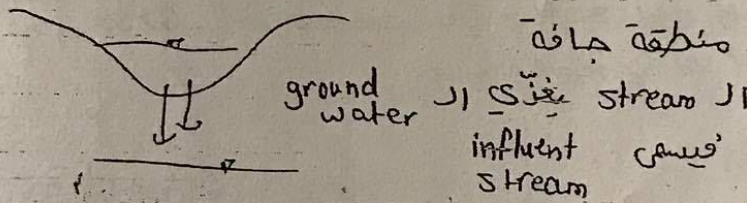 منطقة جافة
ال stream يغذّي ال ground water
فيسمى influent
stream